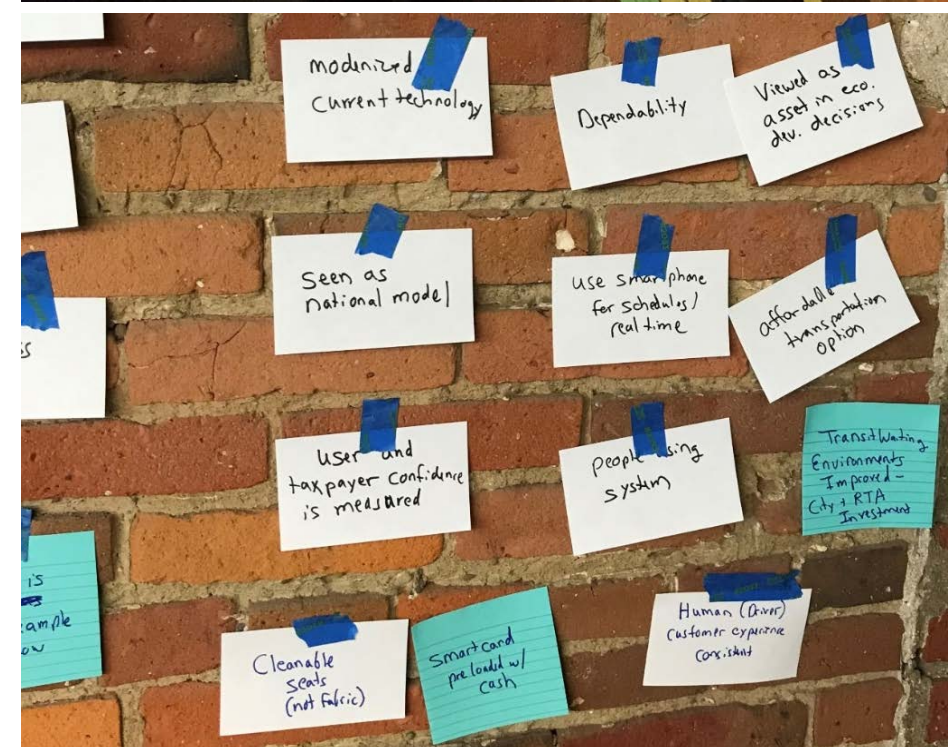 modernized
current technology
Dependability
Viewed as
asset in eco.
dev. decisions
Seen as
national model
use smartphone
for schedules/
real time
affordable
transportation
option
user and
taxpayer confidence
is measured
people using
system
Transit Waiting
Environments
Improved -
City + RTA
Investment
is
ample
Cleanable
seats
(not fabric)
Smartcard
preloaded w/
cash
Human (Driver)
customer experience
consistent